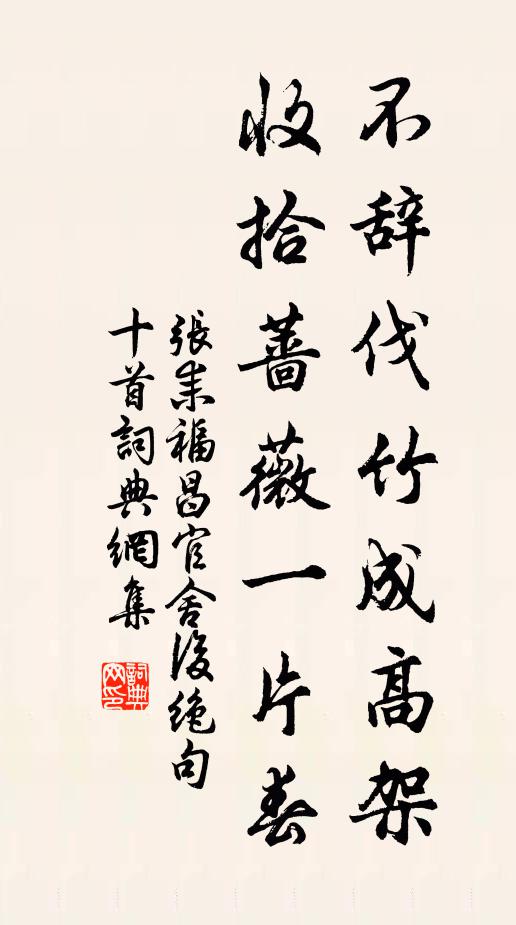 不辞伐竹成高架
收拾蔷薇一片春
張耒福昌官舍後絶句
十首詞典網集
詞典网印